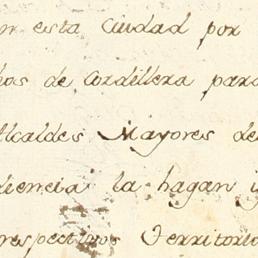 en esta ciudad por
hos de Cordillera para
Alcaldes Mayores de
diencia la hagan
respectivos territorio